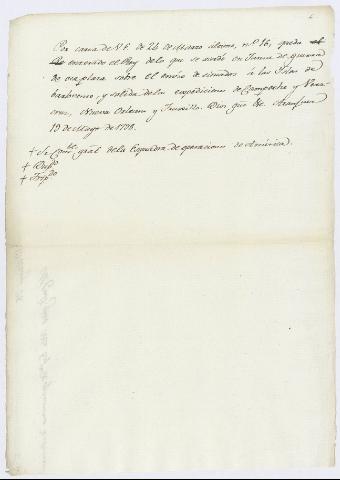 Por carta de V.E. de 24 de Marzo último, nº 16, queda el
enterado el Rey de lo que se acordó en Junta de guerra
de esa plaza sobre el envio de situados á las Islas de
barlovento, y salida de las expediciones de Campeche y Vera-
cruz, Nueva Orleans y Truxillo. Dios gûe &c. Aranjuez
19 de Mayo de 1798.
+ Sr. Comte. gral de la Esquadra de operaciones de América.
+ Dupdo
+ Tripdo